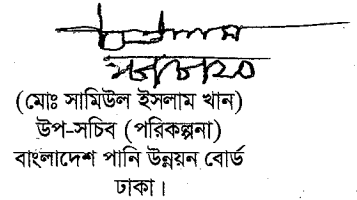 (মোঃ সামিউল ইসলাম খান)
উপ-সচিব (পরিকল্পনা)
বাংলাদেশ পানি উন্নয়ন বোর্ড
ঢাকা।